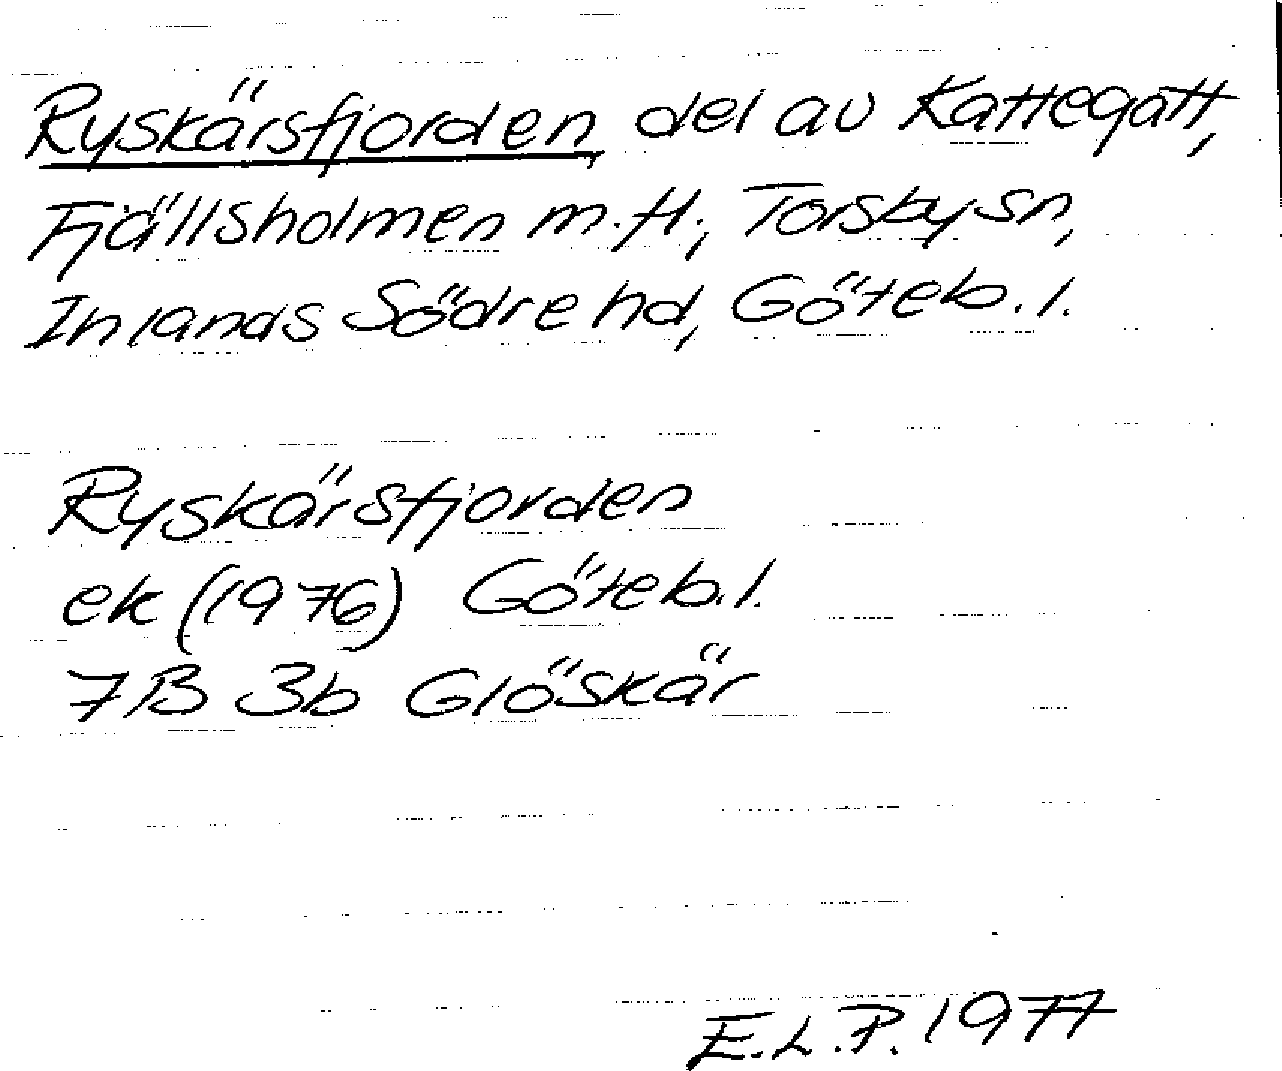 Ryskärsfjorden, del av Kattegatt,
Fjällsholmen m.fl., Torsby sn,
Inlands Södre hd, Göteb. l.
Ryskärsfjorden
ek (1976) Göteb. l.
7B 3b Glöskär
E.L.P. 1977